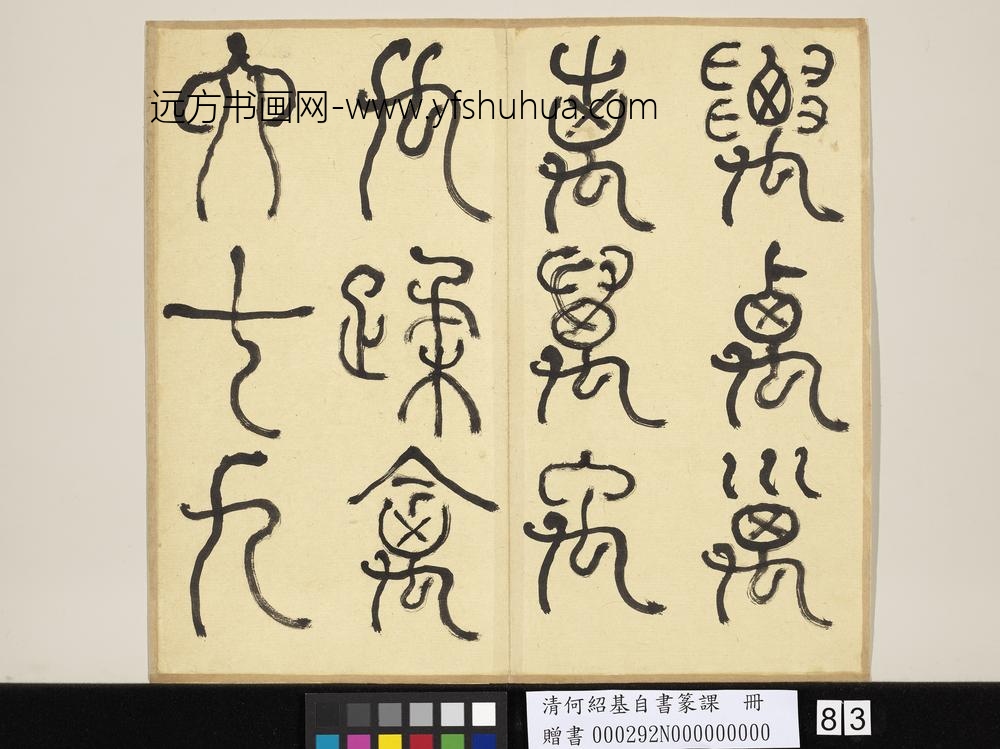 卨
离萬禹
禸蹂禽
六七九
远方书画网-www.yfshuhua.com
清何紹基自書篆課 冊
贈書 000292N000000000
83